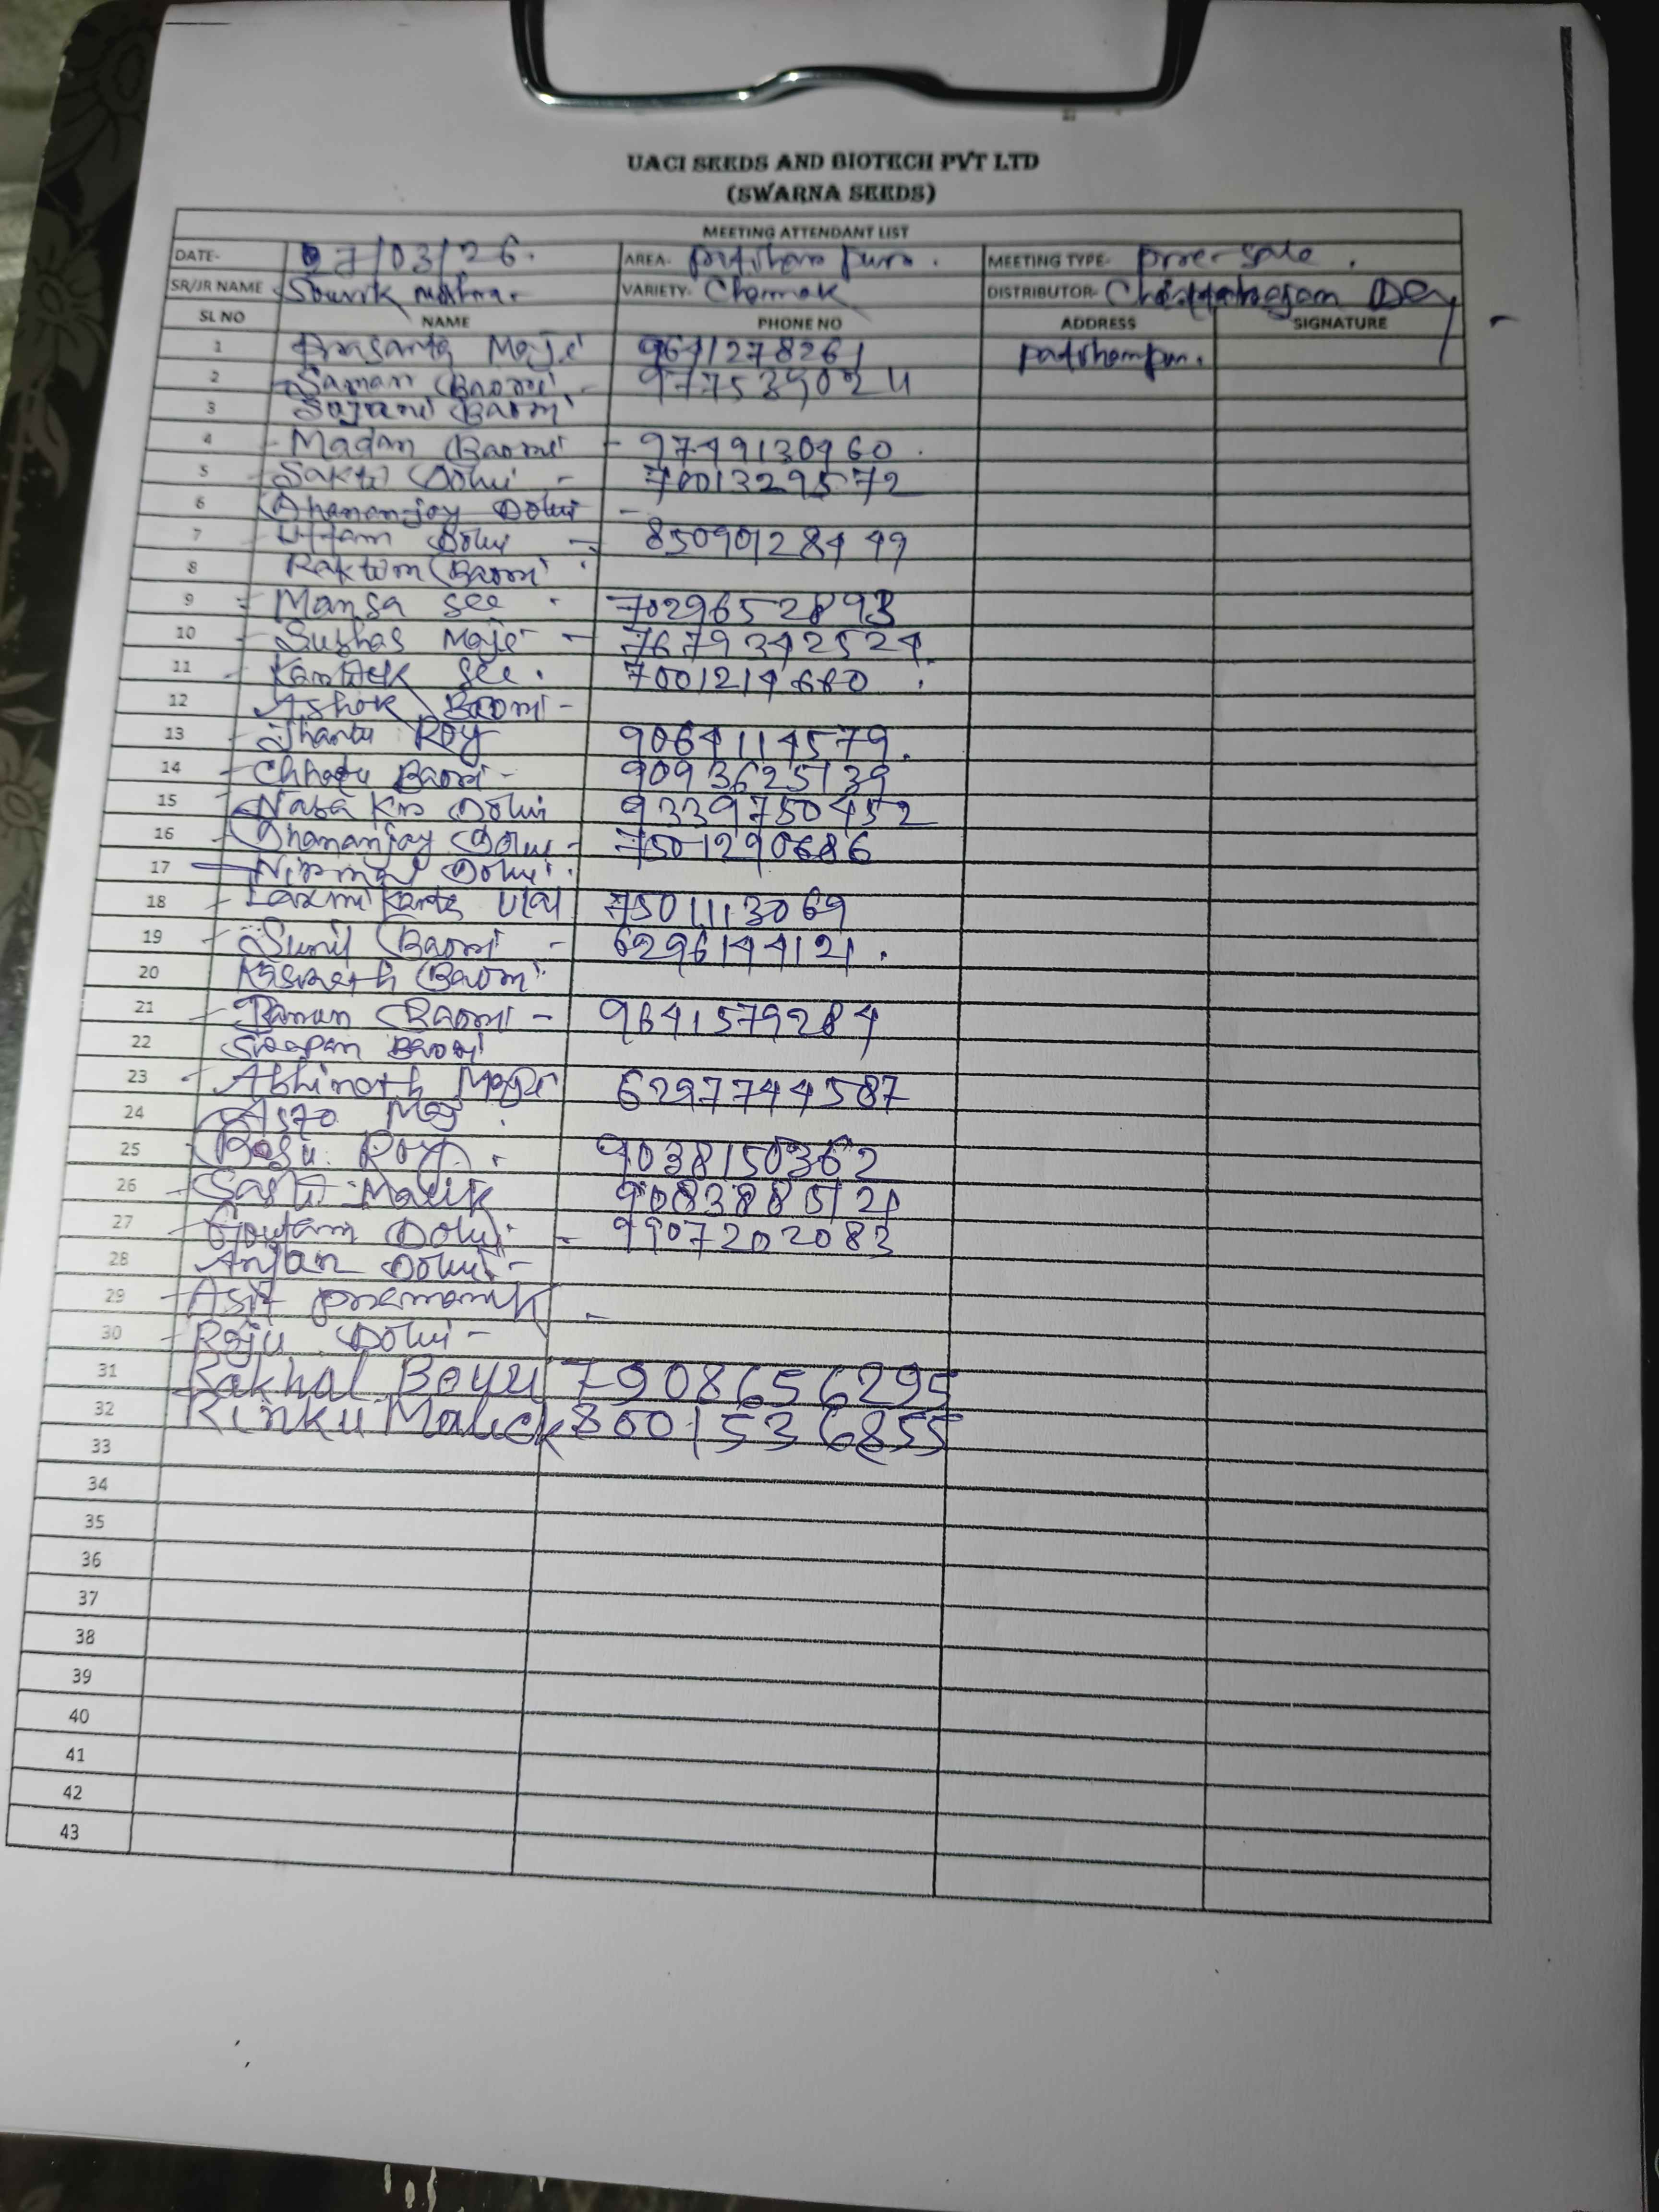 UACI SEEDS AND BIOTECH PVT LTD
(SWARNA SEEDS)
MEETING ATTENDANT LIST
DATE- 07/03/26. AREA- MEETING TYPE- pre-sale.
SR/JR NAME Souvik VARIETY- Chomak DISTRIBUTOR- Dey
SL NO NAME PHONE NO ADDRESS SIGNATURE
1 Prasanta Maji 9641278261
2 Saman Baori - 977539024
3 Baori
4 Madan Baori - 9749130960.
5 Sakti Dolui - 7001329572
6 Dhananjoy Dolui -
7 Uttam Dolui - 8509012849
8 Raktim Baori
9 Mansa See 7029652893
10 Subhas Maji - 7679342524
11 Kartick See. 7001214680
12 Ashok Baori -
13 Jhantu Roy 9064114579.
14 Baori - 9093625139
15 Dolui 9339750452
16 Dhananjoy Dolui - 7501290686
17 Nirmal Dolui
18 Laxmikanta 7501113069
19 Sunil Baori - 6296144121.
20 Baori
21 Baori - 9641579284
22 Swapan Baori
23 Abhinath Maji 6297744587
24
25 Basu Roy 9038150362
26 Malik
27 Goutam Dolui -
28 Anjan Dolui -
29 Asit pramanik -
30 Raju Dolui -
31 Rakhal 7908656295
32 Rinku Malick 8001536855
33
34
35
36
37
38
39
40
41
42
43